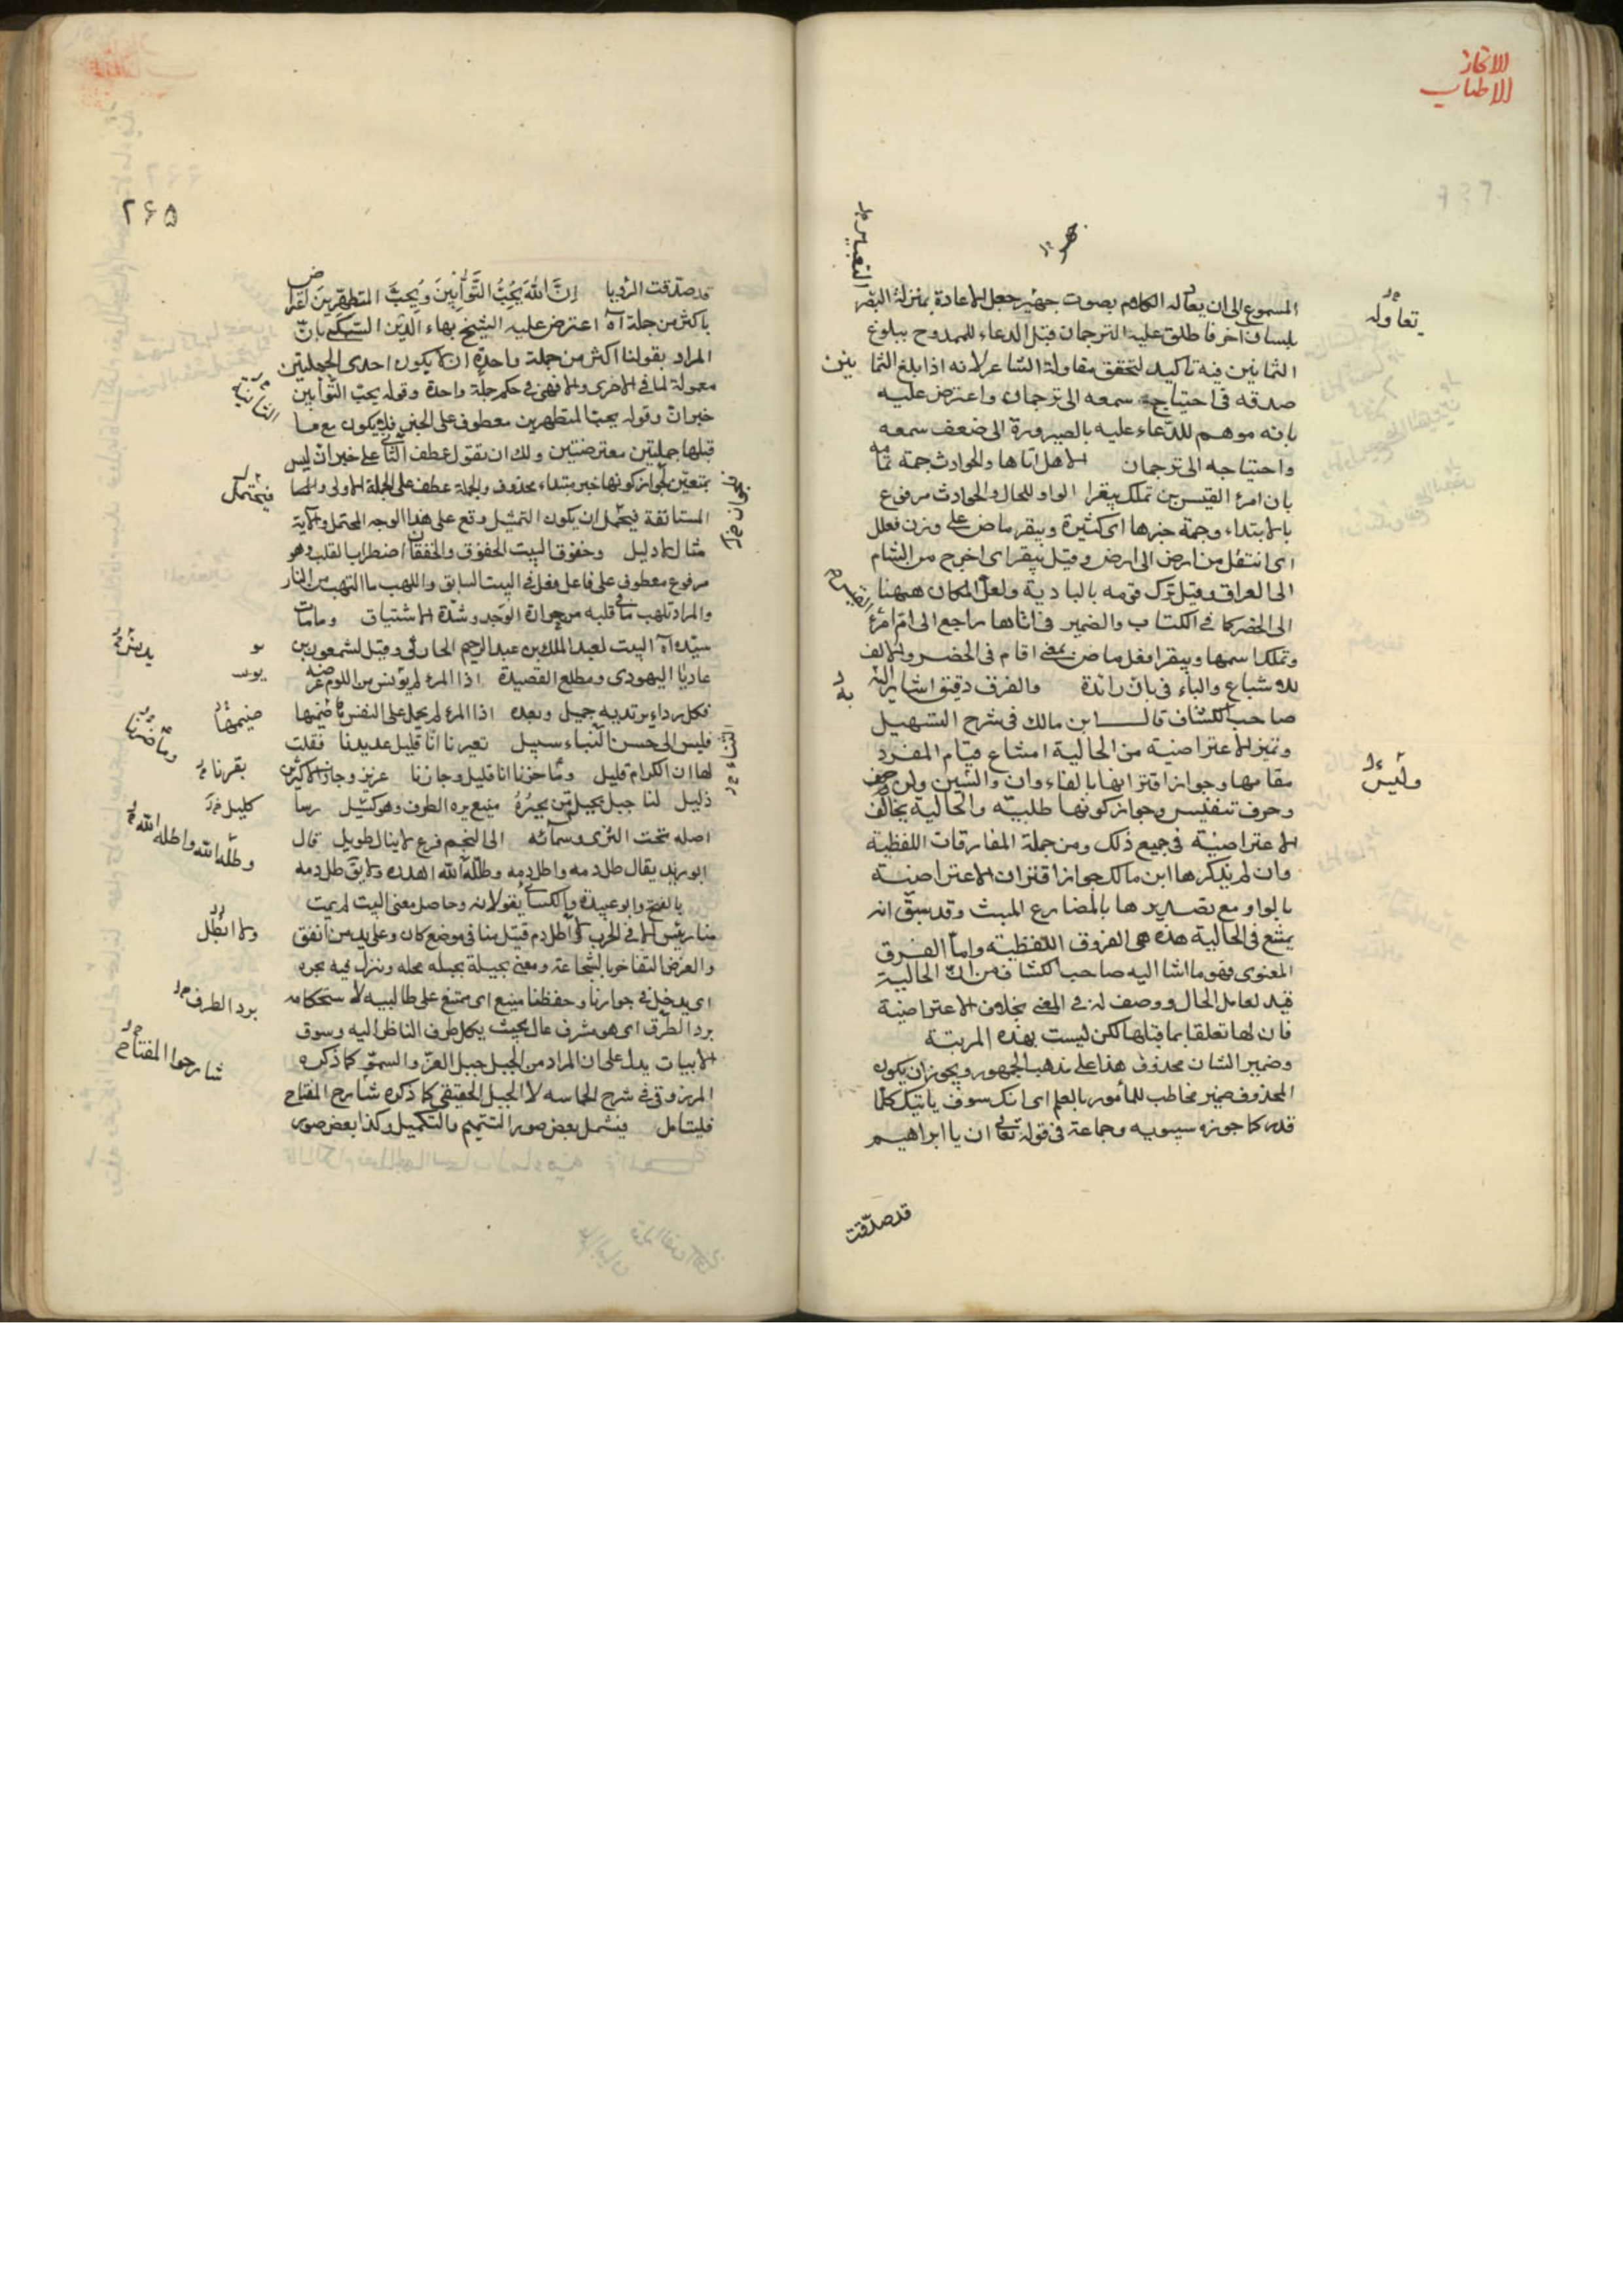 الايجاز
الاطناب
المسموع الى ان يعاد له الكلام بصوت جهير جعل الاعادة بمنزلة التعبير
بلسان اخر فاطلق عليه الترجمان فقبل الدعاء للممدوح ببلوغ
الثمانين فيه تاكيد لتحقق مقاولة الشاعر لانه اذا بلغ الثمانين
صدقه فى احتياج سمعه الى ترجمان واعترض عليه
بانه موهم للدعاء عليه بالصيرورة الى ضعف سمعه
واحتياجه الى ترجمان الاهل اتاها والحوادث جمة تمامه
بان امرئ القيس بن تملك بيقرا الواو للحال والحوادث مرفوع
بالابتداء وجمة خبرها اى كثيرة وبيقر ماض على وزن فعلل
اى انتقل من ارض الى ارض وقيل بيقر اى اخرج من الشام
الى العراق وقيل ترك قومه بالبادية ولعل المكان ههنا
الى الحضر كما فى الكتاب والضمير فى اتاها راجع الى ام امرئ
وتملك اسمها وبيقرا فعل ماض بمعنى اقام فى الحضر والالف
للاشباع والباء فى بان زائدة والفرق دقيق اشار اليه
صاحب الكشاف قال ابن مالك فى شرح التسهيل
وتميز الاعتراضية من الحالية امتناع قيام المفرد
مقامها وجواز اقترانها بالفاء وان والسين ولن وحرف
وحرف تنفيس وجواز كونها طلبية والحالية يخالف
الاعتراضية فى جميع ذلك ومن جملة المفارقات اللفظية
وان لم يذكرها ابن مالك جواز اقتران الاعتراضية
بالواو مع تصديرها بالمضارع المبثت وقد سبق انه
يمتنع فى الحالية هذه هى الفروق اللفظية واما الفرق
المعنوى فهو ما اشار اليه صاحب الكشاف من ان الحالية
قيد لعامل الحال ووصف له فى المعنى بخلاف الاعتراضية
فان لها تعلقا بما قبلها لكن ليست بهذه المرتبة
وضمير الشان محذوف هذا على مذهب الجمهور ويجوز ان يكون
المحذوف ضمير مخاطب للمأمور بالعلم اى انك سوف ياتيك كلما
قدر كما جوزه سيبويه وجماعة فى قوله تعالى ان يا ابراهيم
قد صدّقت
تعاوله
وليس
٢٦٥
قد صدّقت الرؤيا انّ الله يُحِبُّ التَّوَّابِينَ ويُحِبُّ المتطهّرين
باكثر من جملة آه اعترض عليه الشيخ بهاء الدين السبكى بانّ
المراد بقولنا اكثر من جملة واحدة ان لا يكون احدى الجملتين
معمولة لما فى الاخرى والا فهى فى حكم جملة واحدة وقوله يحب التوابين
خبر انّ وقوله يحب المتطهرين معطوف على الخبر فلا يكون مع ما
قبلها جملتين معترضتين ولك ان تقول عطف الثانى على خبر ان ليس
بمتعين لجواز كونها خبر مبتداء محذوف والجملة عطف على الجملة الاولى
المستانفة فيحتمل ان يكون التمثيل وقع على هذا الوجه المحتمل والآية
مثال لا دليل وخفوق البيت الخفوق والخفقان اضطراب القلب وهو
مرفوع معطوف على فاعل فعل فى البيت السابق واللهب ما التهب من النار
والمراد تلهب ما فى قلبه من حرارة الوجد وشدة الاشتياق وما مات
سيّد آه البيت لعبد الملك بن عبد الرحيم الحارثى وقيل لشمعون بن
عاديا اليهودى ومطلع القصيدة اذا المرء لم يدنس من اللوم عرضه
فكل رداء يرتديه جميل وبعده اذا المرء لم يحمل على النفس ضيمها
فليس الى حسن الثناء سبيل تعيرنا انّا قليل عديدنا فقلت
لها ان الكرام قليل وما ضرّنا انا قليل وجارنا عزيز وجار الاكثرين
ذليل لنا جبل يحتله من نجيره منيع يرد الطرف وهو كليل رسا
اصله تحت الثرى وسما به الى النجم فرع لا ينال طويل قال
ابو زيد يقال طل دمه واطل دمه وطله الله اهدره ولا يق طل دمه
بالفتح وابو عبيدة والكسائى يقولانه وحاصل معنى البيت لم يمت
والغرض التفاخر بالشجاعة
اى يدخل فى جوارنا وحفظنا منيع اى ممتنع على طالبيه لاستحكامه
يرد الطرف اى هو مشرف عال بحيث يكل طرف الناظر اليه وسوق
الابيات يدل على ان المراد من الجبل جبل العز والسمو كما ذكره
المرزوقى فى شرح الحماسه لا الجبل الحقيقى كما ذكره شارح المفتاح
فليتامل فيشمل بعض صور التتميم والتكميل وكذا بعض صور
الثانية
فيحتمل
ضيمها
وما ضرّنا
كليل
وطلّه الله واطله الله
يرد الطرف
شارحوا المفتاح